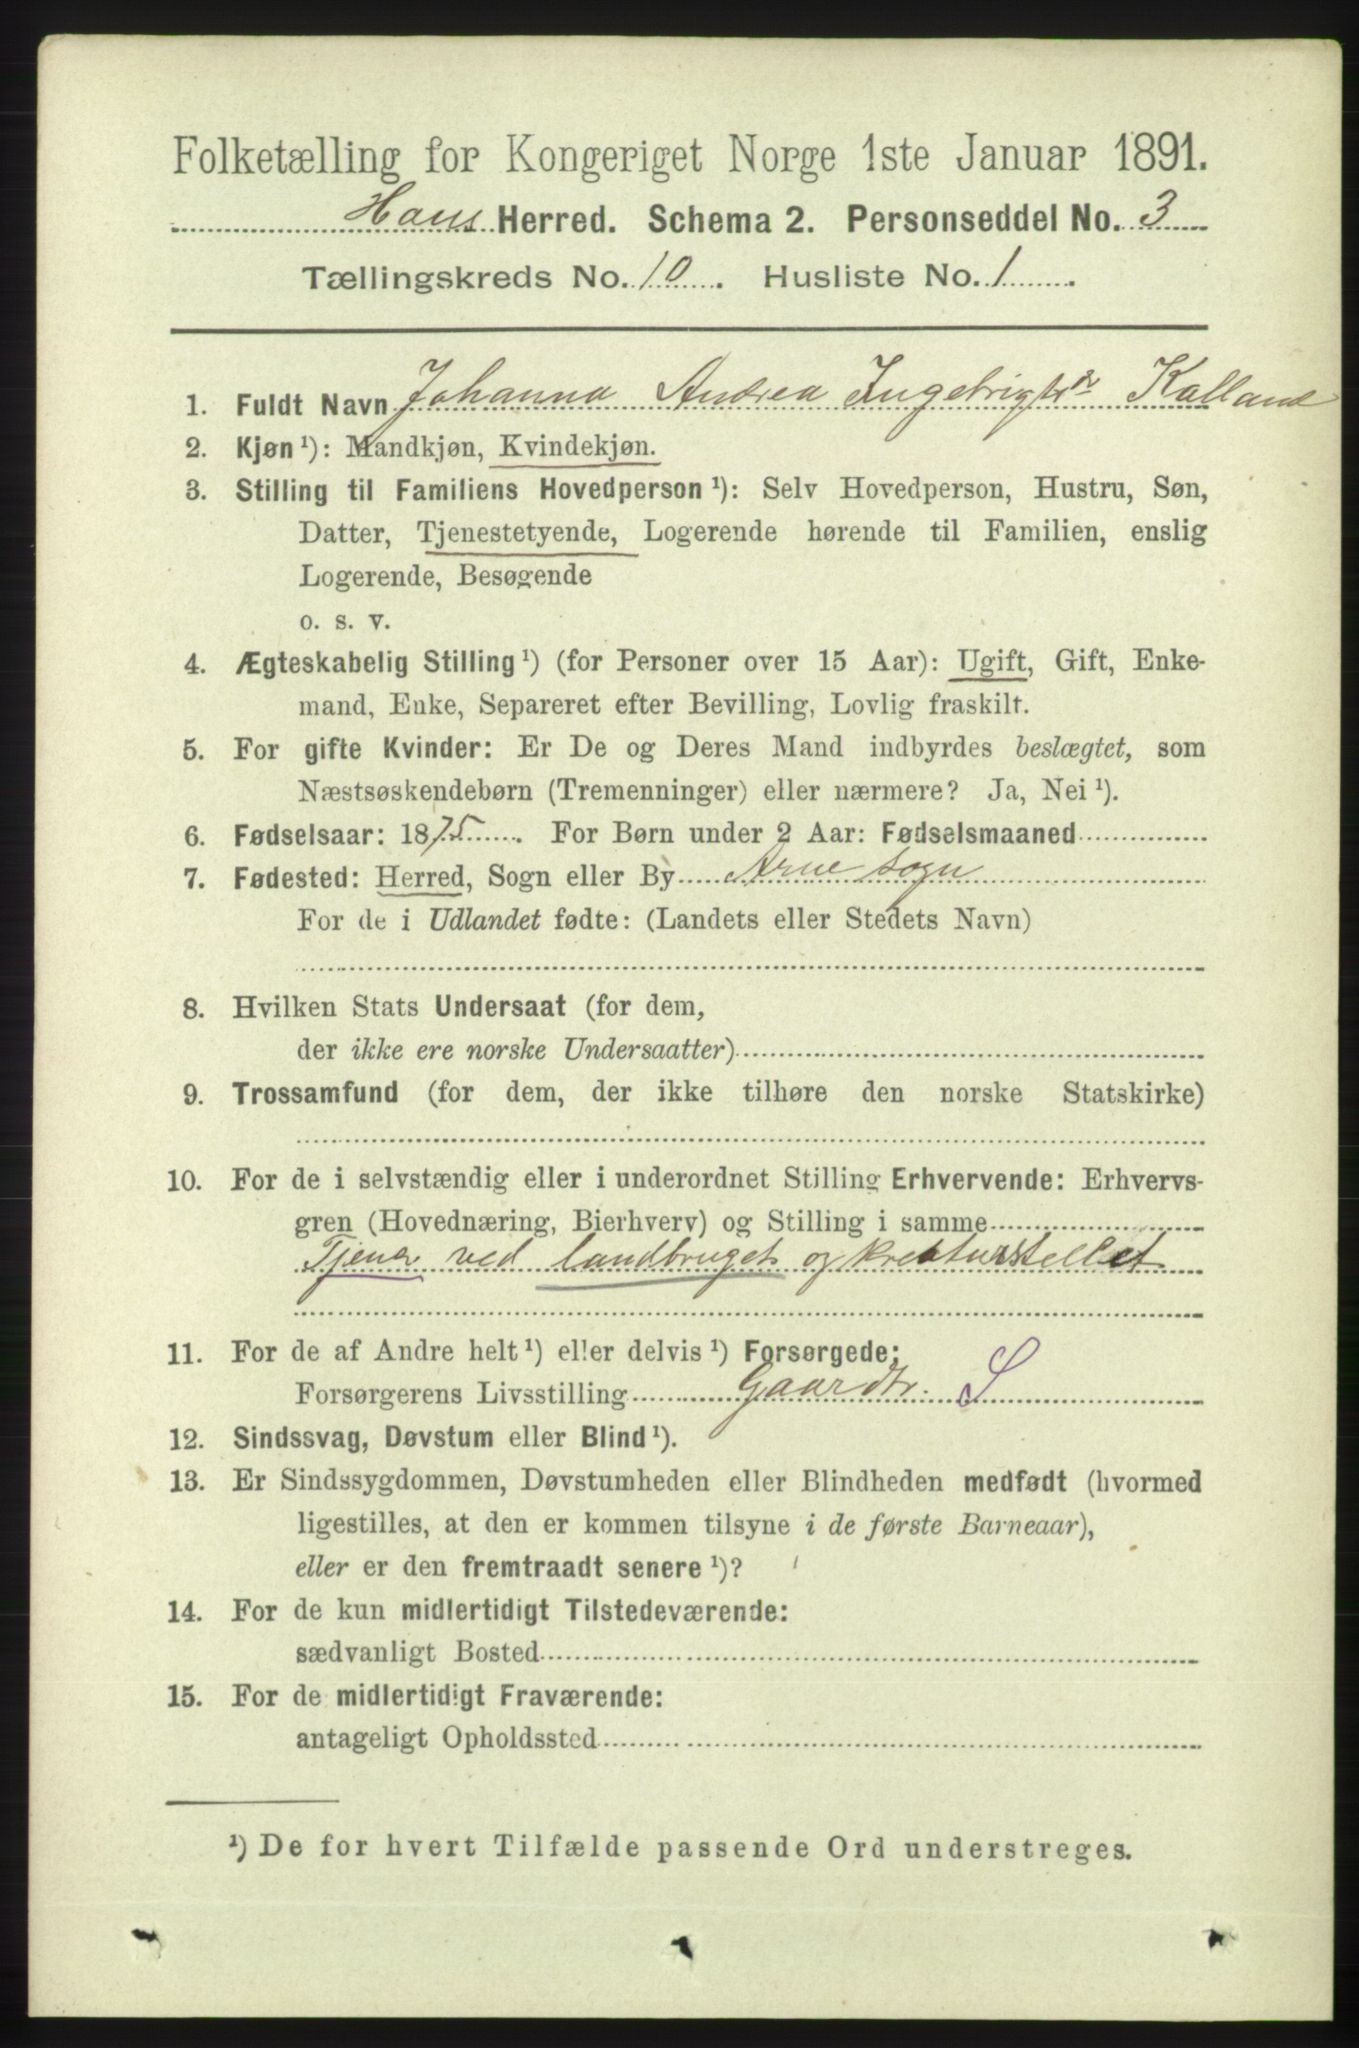 Folketælling for Kongeriget Norge 1ste Januar 1891.
Haus Herred. Schema 2. Personseddel No. 3
Tællingskreds No. 10. Husliste No. 1.
1. Fuldt Navn Johanna Andrea Ingebrigtsdr Kalland
2. Kjøn ¹): Mandkjøn, Kvindekjøn.
3. Stilling til Familiens Hovedperson ¹): Selv Hovedperson, Hustru, Søn,
Datter, Tjenestetyende, Logerende hørende til Familien, enslig
Logerende, Besøgende
o. s. v.
4. Ægteskabelig Stilling ¹) (for Personer over 15 Aar): Ugift, Gift, Enke-
mand, Enke, Separeret efter Bevilling, Lovlig fraskilt.
5. For gifte Kvinder: Er De og Deres Mand indbyrdes beslægtet, som
Næstsøskendebørn (Tremenninger) eller nærmere? Ja, Nei ¹).
6. Fødselsaar: 1875. For Børn under 2 Aar: Fødselsmaaned
7. Fødested: Herred, Sogn eller By Arne sogn
For de i Udlandet fødte: (Landets eller Stedets Navn)
8. Hvilken Stats Undersaat (for dem,
der ikke ere norske Undersaatter)
9. Trossamfund (for dem, der ikke tilhøre den norske Statskirke)
10. For de i selvstændig eller i underordnet Stilling Erhvervende: Erhvervs-
gren (Hovednæring, Bierhverv) og Stilling i samme
Tjener ved landbruget og kreaturstellet
11. For de af Andre helt ¹) eller delvis ¹) Forsørgede:
Forsørgerens Livsstilling Gaardbr. S
12. Sindssvag, Døvstum eller Blind ¹).
13. Er Sindssygdommen, Døvstumheden eller Blindheden medfødt (hvormed
ligestilles, at den er kommen tilsyne i de første Barneaar),
eller er den fremtraadt senere ¹)?
14. For de kun midlertidigt Tilstedeværende:
sædvanligt Bosted
15. For de midlertidigt Fraværende:
antageligt Opholdssted
¹) De for hvert Tilfælde passende Ord understreges.